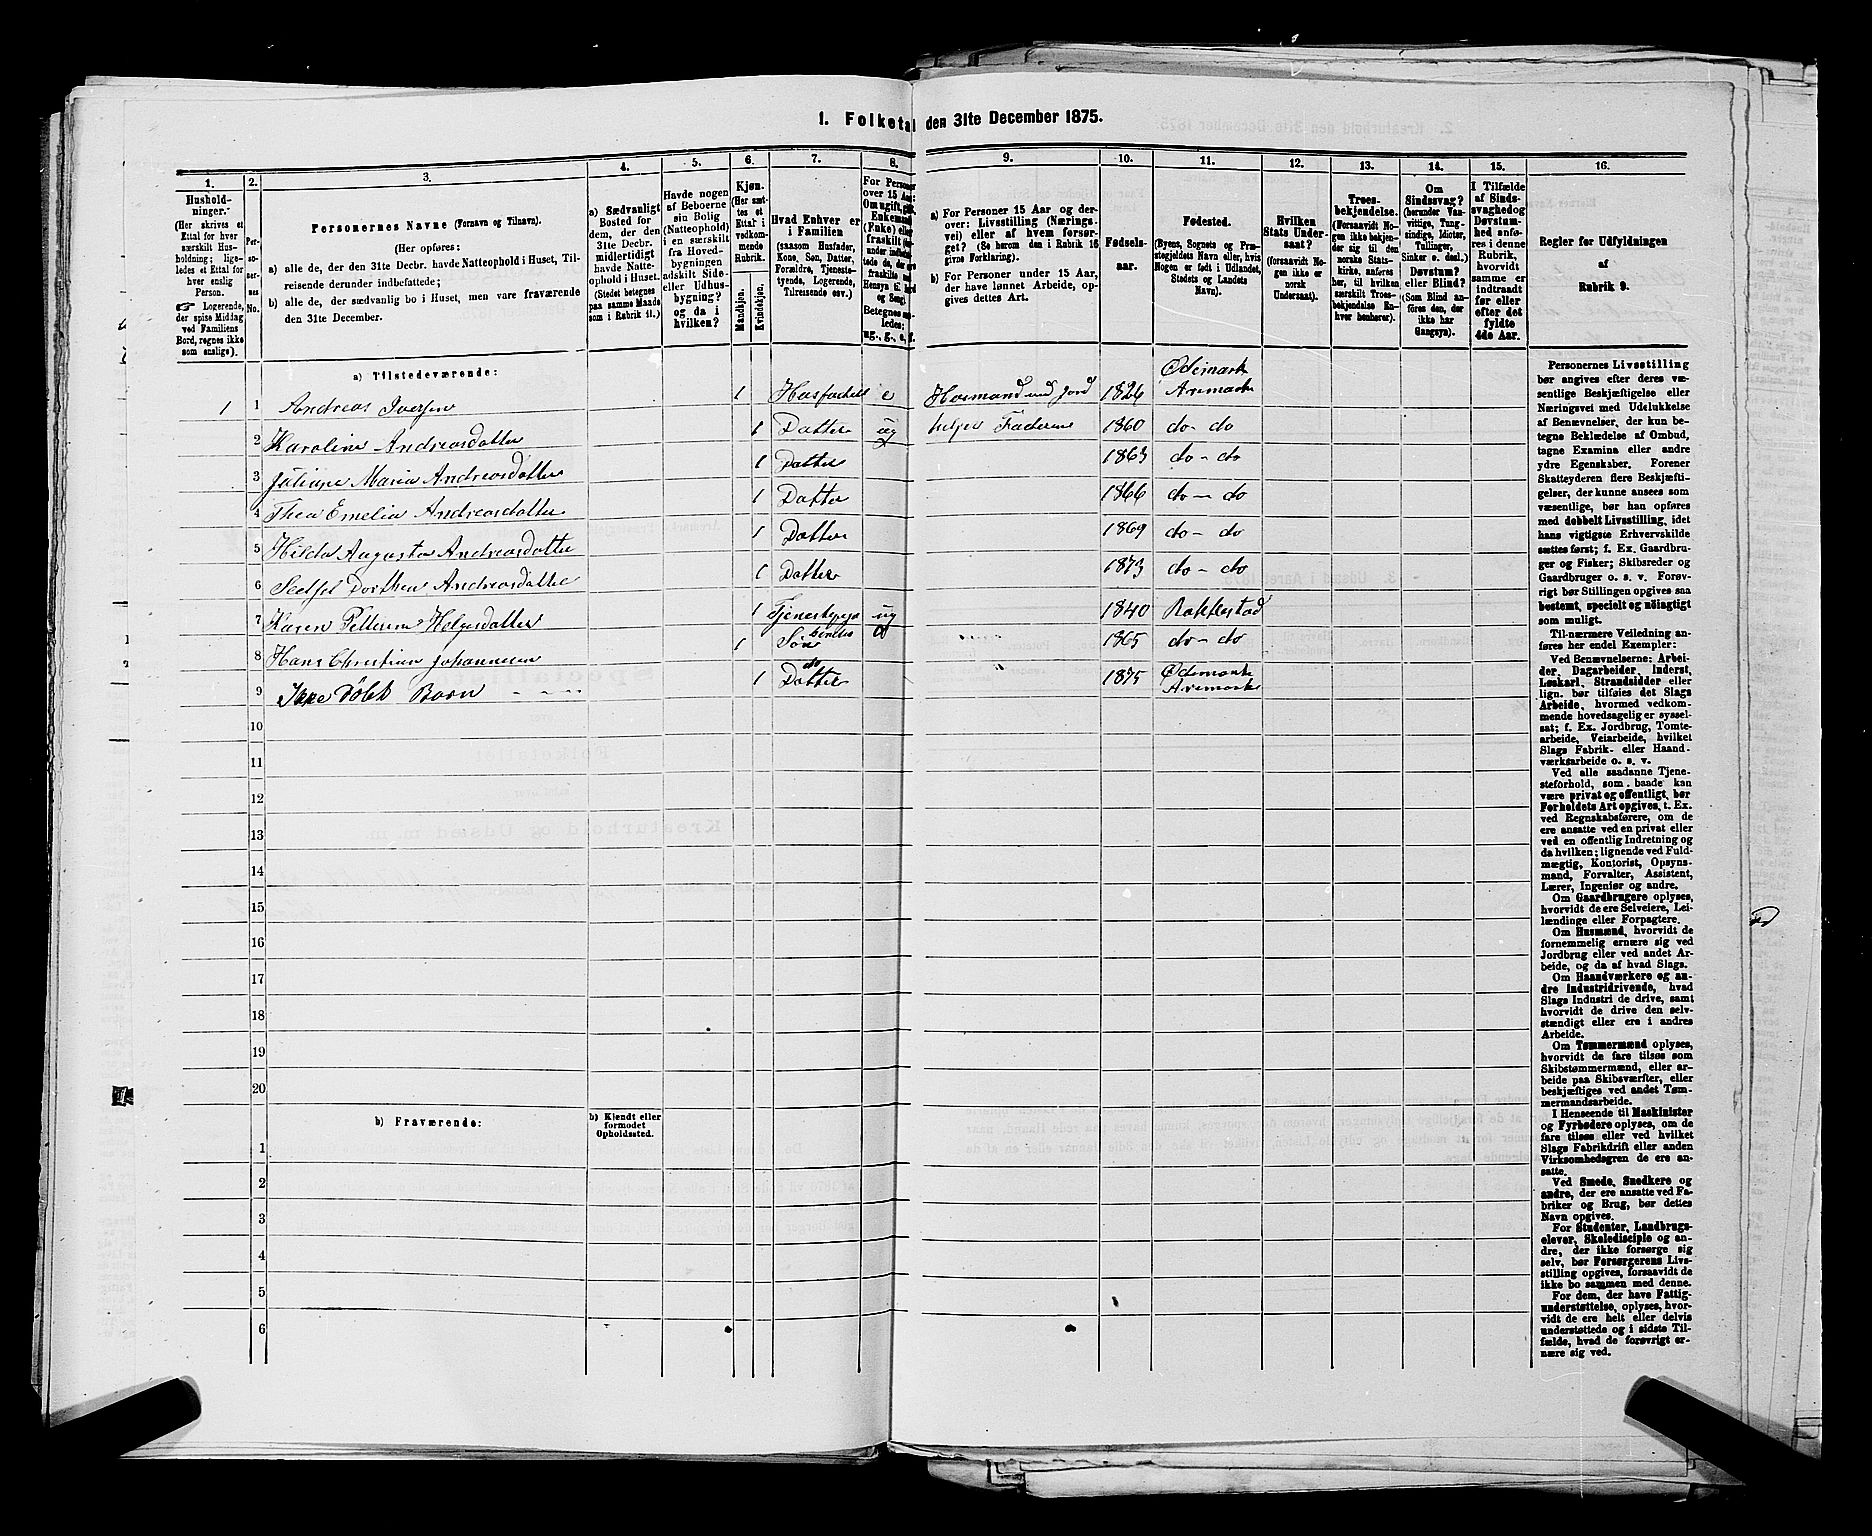 1. Folketal den 31te December 1875.
1.
Hushold-
ninger.
(Her skrives et
Ettal for hver
særskilt Hus-
holdning; lige-
ledes et Ettal for
hver enslig
Person.
Logerende,
der spise Middag
ved Familiens
Bord, regnes ikke
som enslige).
2.
Per-
soner-
nes
No.
3.
Personernes Navne (Fornavn og Tilnavn).
(Her opføres:
a) alle de, der den 31te Decbr. havde Natteophold i Huset, Til-
reisende derunder indbefattede;
b) alle de, der sædvanlig bo i Huset, men vare fraværende
den 31te December.
4.
a) Sædvanligt
Bosted for
dem, der den
31te Decbr.
midlertidigt
havde Natte-
ophold i Huset.
(Stedet betegnes
paa samme Maade
som i Rubrik 11.)
5.
Havde nogen
af Beboerne
sin Bolig
(Natteophold)
i en særskilt
fra Hoved-
bygningen
adskilt Side-
eller Udhus-
bygning?
og da i
hvilken?
6.
Kjøn.
(Her sæt-
tes et
Ettal i
vedkom-
mende
Rubrik.
Mandkjøn.
Kvindekjøn.
7.
Hvad Enhver er
i Familien
(saasom Husfader,
Kone, Søn, Datter,
Forældre, Tjeneste-
tyende, Logerende,
Tilreisende osv.)
8.
For Personer
over 15 Aar:
9.
a) For Personer 15 Aar og der-
over: Livsstilling (Nærings-
vei) eller af hvem forsør-
get? (Se herom den i Rubrik 16
givne Forklaring).
b) For Personer under 15 Aar,
der have lønnet Arbeide, op-
gives dettes Art.
10.
Fødsels-
aar.
11.
Fødested.
(Byens, Sognets og Præ-
stegjeldets Navn eller, hvis
Nogen er født i Udlandet,
Stedets og Landets
Navn).
12.
Hvilken
Stats Under-
saat?
(forsaavidt No-
gen ikke er
norsk
Undersaat).
13.
Troes-
bekjendelse.
(Forsaavidt No-
gen ikke bekjen-
der sig til den
norske Stats-
kirke, anføres
her, til hvilken
særskilt Troes-
bekjendelse En-
hver henhører).
14.
Om
Sindssvag?
(herunder Van-
vittige, Tung-
sindige, Idioter,
Tullinger,
Sinker o. desl.)
Døvstum?
eller Blind?
(Som Blind an-
føres den, der
ikke har
Gangsyn).
15.
I Tilfælde
af Sinds-
svaghed og
Døvstum-
hed anfø-
res i denne
Rubrik,
hvorvidt
samme er
indtraadt
før eller
efter det
fyldte
4de Aar.
16.
Regler for Udfyldningen
af
Rubrik 9.
a) Tilstedeværende:
1 1 Andreas Iversen 1 Husfader e Husmand med Jord 1826 Ødemark Aremark
2 Karoline Andreasdatter 1 Datter ug helper Faderen 1860 do - do
3 Juliane Maria Andreasdatter 1 Datter 1863 do - do
4 Thea Emelia Andreasdatter 1 Datter 1866 do - do
5 Hilda Augusta Andreasdatter 1 Datter 1869 do - do
6 Dorthea Andreasdatter 1 Datter 1873 do - do
7 Karen Petterine Helgesdatter 1 Tjenestepige ug 1840 Rakkestad
8 Hans Christian Johannesen 1 Søn 1865 do - do
9 Ikke Døbt Barn 1 do Datter 1875 Ødemark Aremark
10
11
12
13
14
15
16
17
18
19
20
b) Fraværende:
b) Kjendt eller
formodet
Opholdssted.
1
2
3
4
5
6
Personernes Livsstilling
bør angives efter deres væ-
sentlige Beskjæftigelse eller
Næringsvei med Udelukkelse
af Benævnelser, der kun be-
tegne Beklædelse af Ombud,
tagne Examina eller andre
ydre Egenskaber. Forener
Skatteyderen flere Beskjæfti-
gelser, der kunne ansees som
væsentlige, bør han opføres
med dobbelt Livsstilling, idet
hans vigtigste Erhvervskilde
sættes først; f. Ex. Gaardbru-
ger og Fisker; Skibsreder og
Gaardbruger o. s. v. Forøv-
rigt bør Stillingen opgives saa
bestemt, specielt og nøiagtigt
som muligt.
Til nærmere Veiledning an-
føres her endel Exempler:
Ved Benævnelserne: Arbei-
der, Dagarbeider, Inderst,
Løskarl, Strandsidder eller
lign. bør tilføies det Slags
Arbeide, hvormed vedkom-
mende hovedsagelig er syssel-
sat; f. Ex. Jordbrug, Tomte-
arbeide, Veiarbeide, hvilket
Slags Fabrik- eller Haand-
værksarbeide o. s. v.
Ved alle saadanne Tjene-
steforhold, som baade kan
være privat og offentligt, bør
Forholdets Art opgives, t. Ex.
ved Regnskabsførere, om de
ere ansatte ved en privat eller
ved en offentlig Indretning og
da hvilken; lignende ved Fuld-
mægtig, Kontorist, Opsyns-
mand, Forvalter, Assistent,
Lærer, Ingeniør og andre.
Om Gaardbrugere oplyses,
hvorvidt de ere Selveiere, Lei-
lændinge eller Forpagtere.
Om Husmænd, hvorvidt de
fornemmelig ernære sig ved
Jordbrug eller ved andet Ar-
beide, og da af hvad Slags.
Om Haandværkere og an-
dre Industridrivende, hvad
Slags Industri de drive, samt
hvorvidt de drive den selv-
stændigt eller ere i andres
Arbeide.
Om Tømmermænd oplyses,
hvorvidt de fare tilsøs som
Skibstømmermænd, eller ar-
beide paa Skibsværfter, eller
beskjæftiges ved andet Tøm-
mermandsarbeide.
I Henseende til Maskinister
og Fyrbødere oplyses, om de
fare tilsøs eller ved hvilket
Slags Fabrikdrift eller anden
Virksomhedsgren de ere an-
satte.
Ved Smede, Snedkere og
andre, der ere ansatte ved Fa-
briker og Brug, bør dettes
Navn opgives.
For Studenter, Landbrugs-
elever, Skoledisciple og an-
dre, der ikke forsørge sig
selv, bør Forsørgerens Livs-
stilling opgives, forsaavidt de
ikke bo sammen med denne.
For dem, der have Fattig-
understøttelse, oplyses, hvor-
vidt de ere helt eller delvis
understøttede og i sidste Til-
fælde, hvad de forøvrigt er-
nære sig ved.